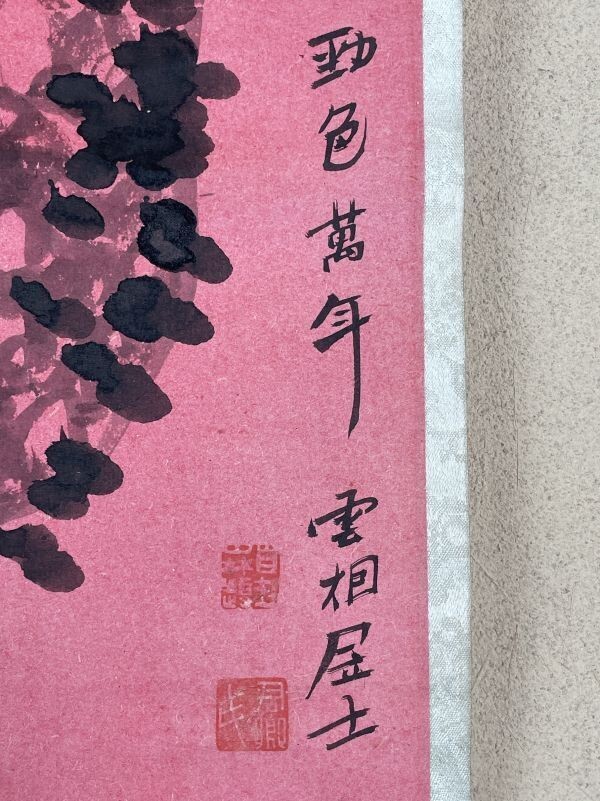 勁色萬年 雲相居士